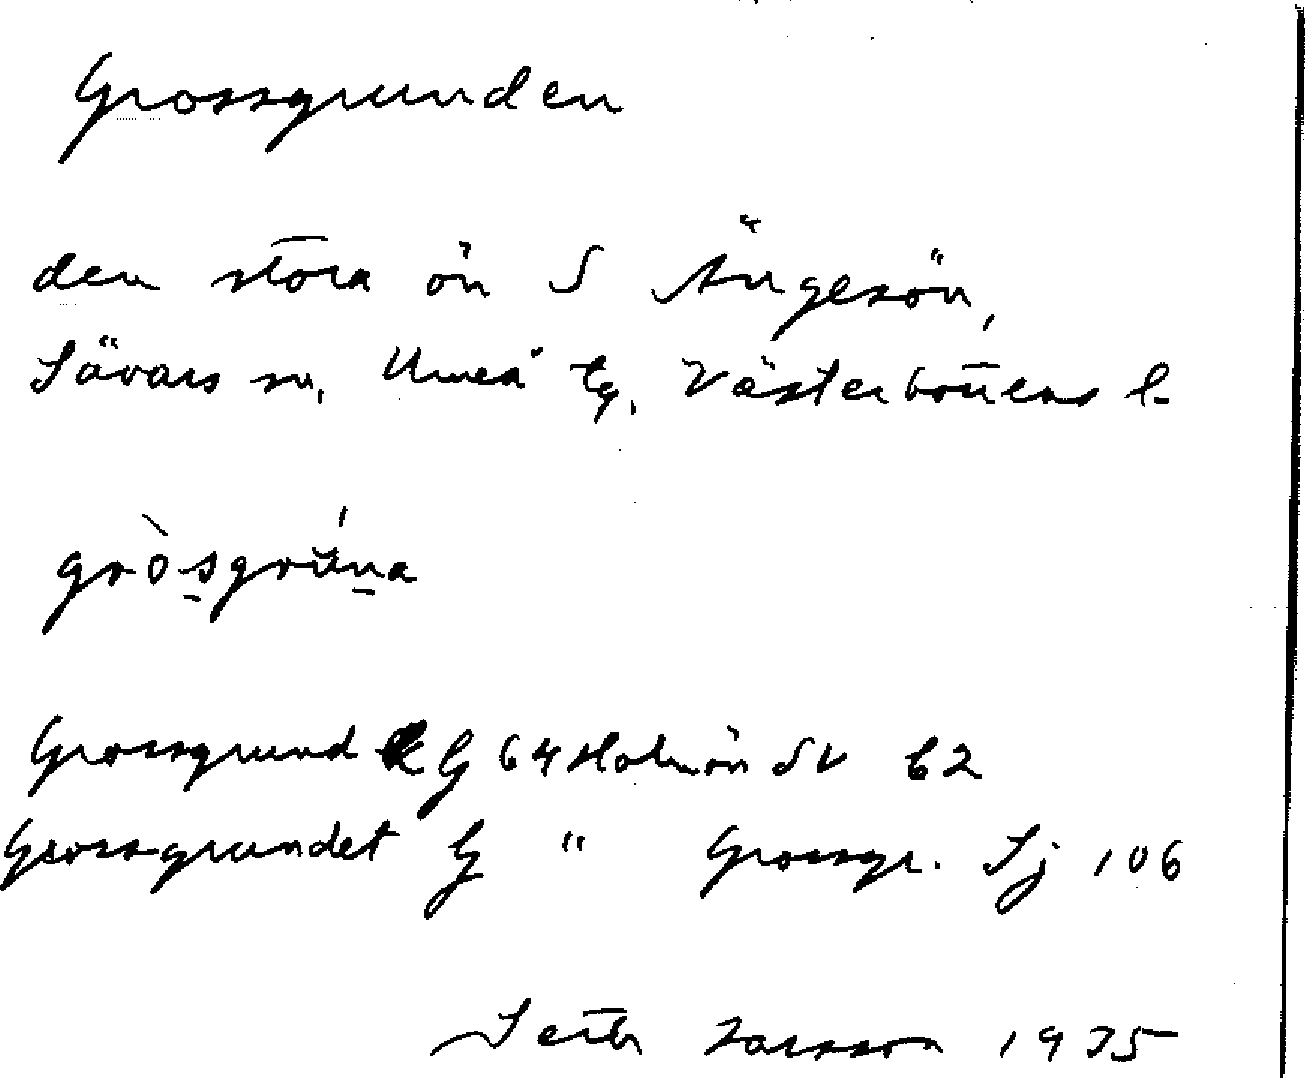 Grossgrunden
den stora ön S Ängesön,
Sävars sn, Umeå tg, Västerbottens l.
gròsgrúna
Grossgrund G 64 Holmön SV 62
Grossgrundet G " Grossgr. Sj 106
Seth Larsson 1975